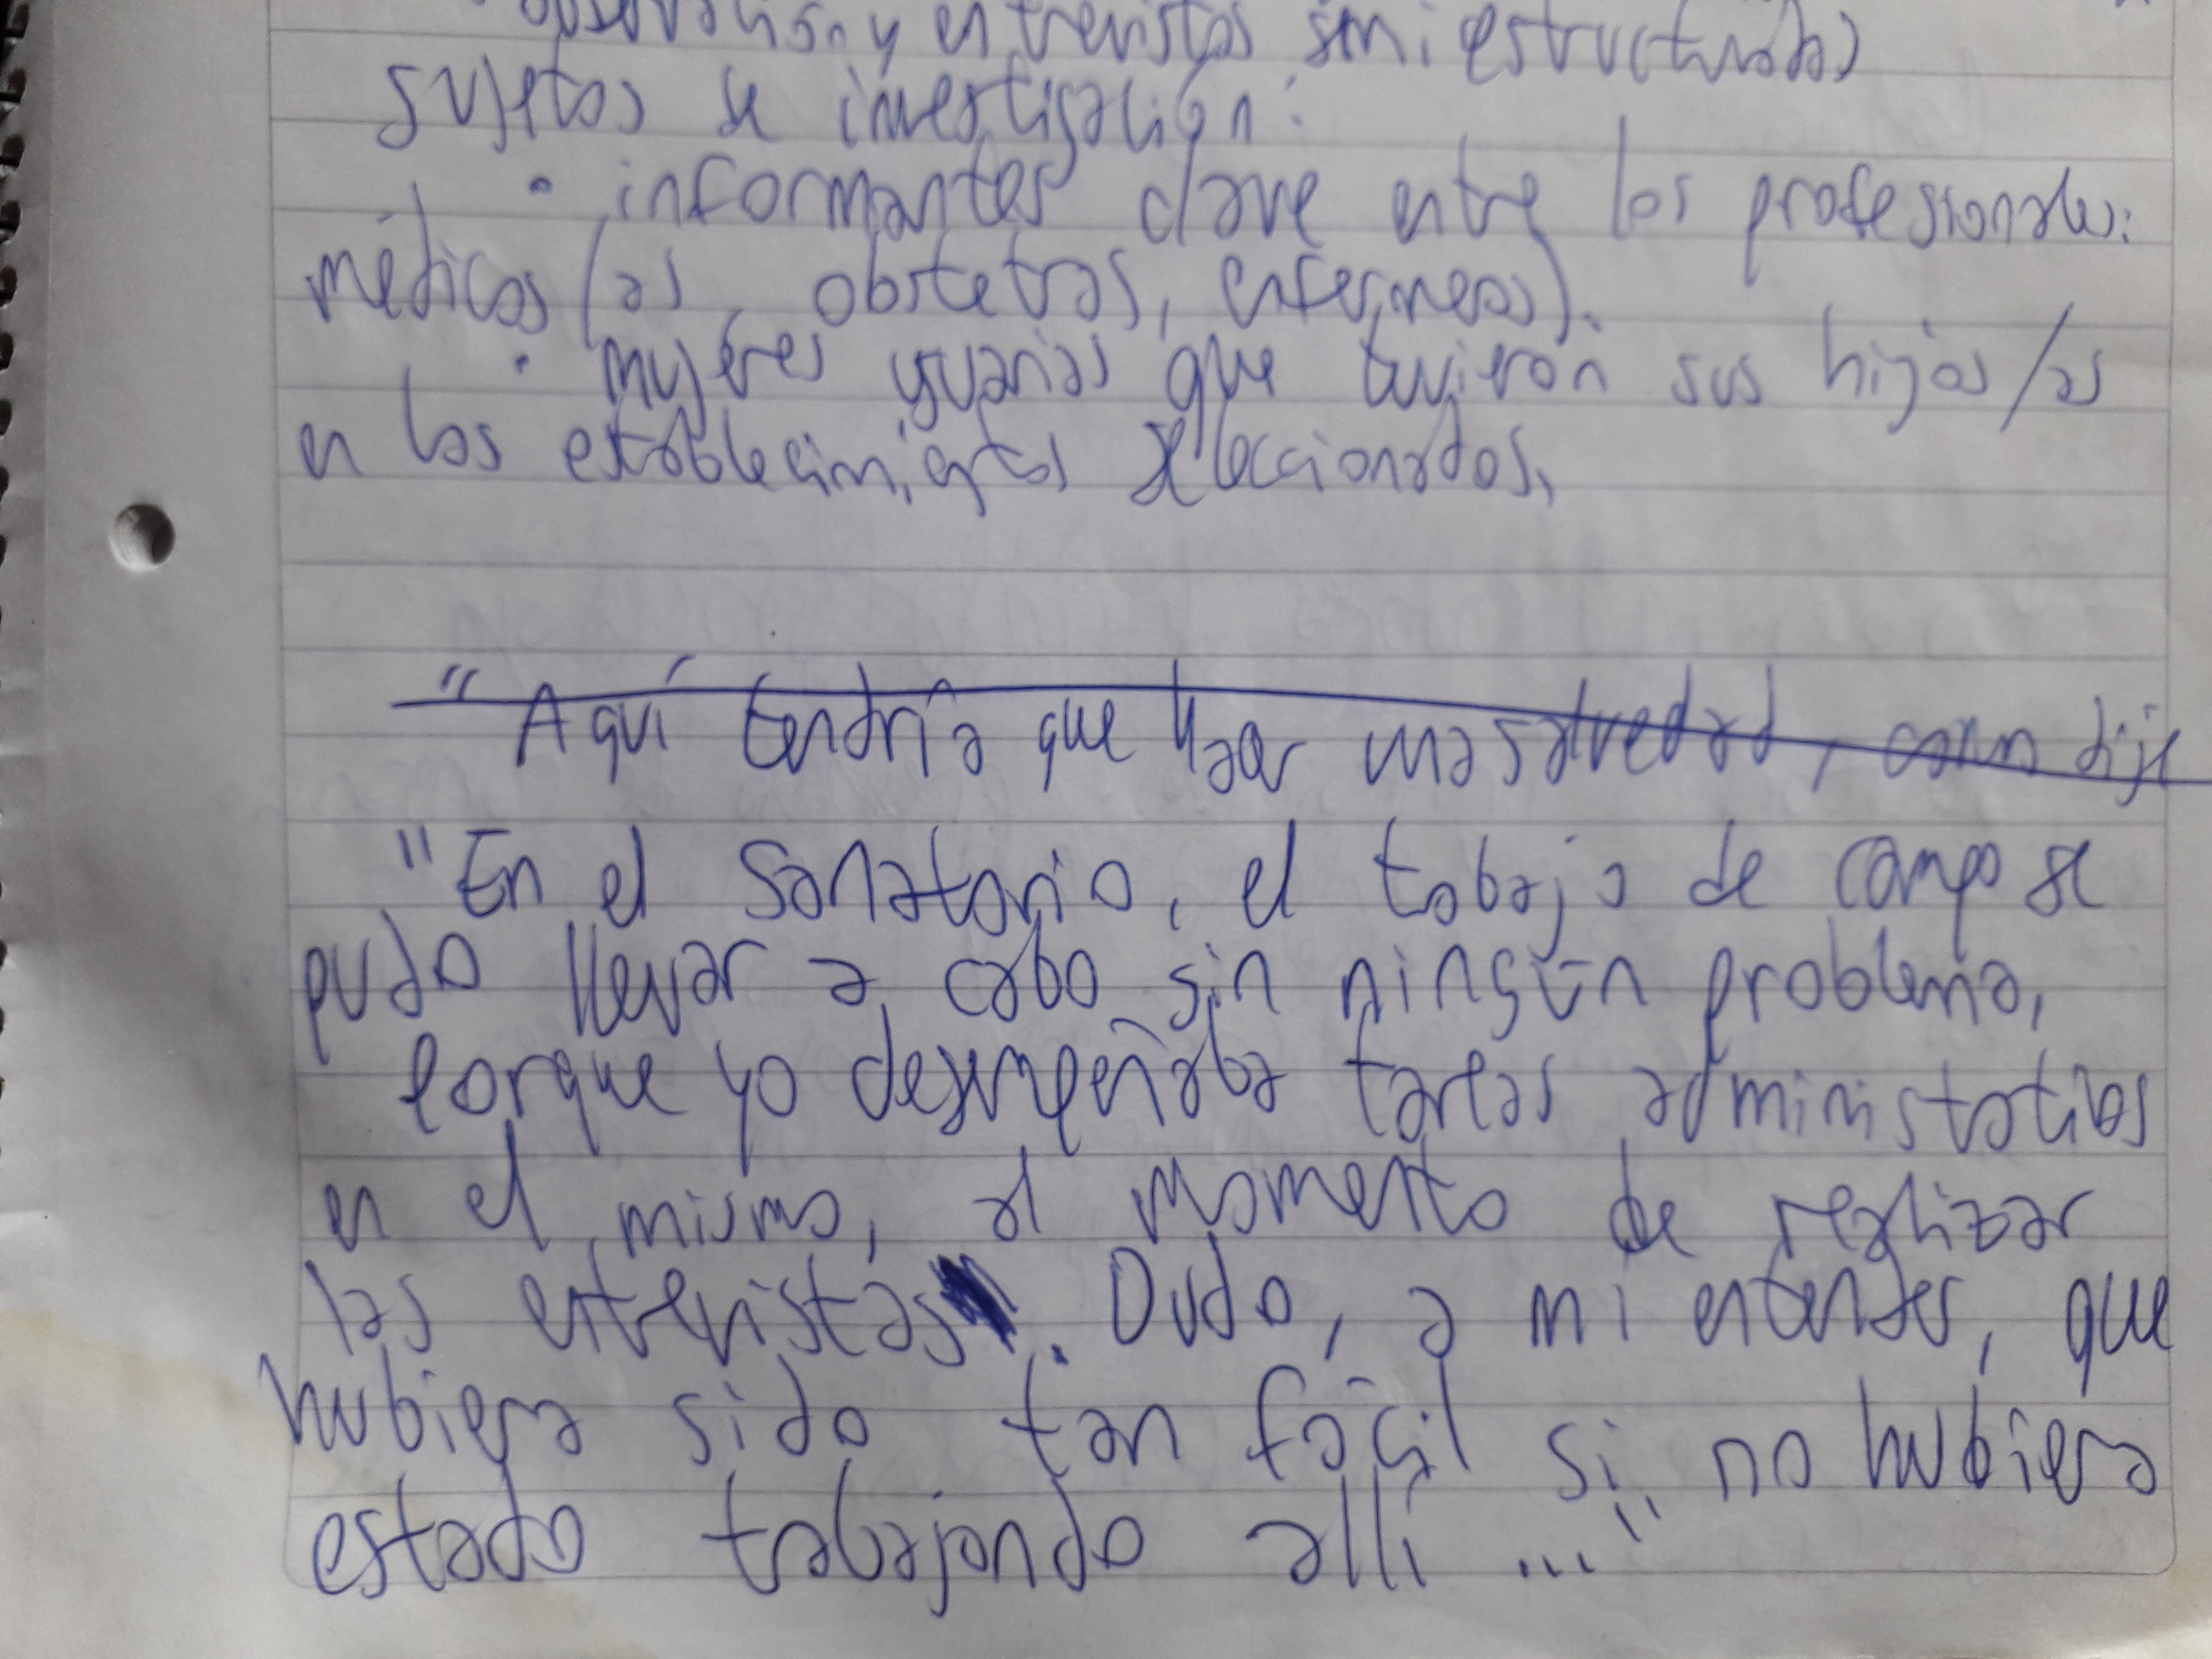 observación y entrevistas semiestructuradas
sujetos de investigación:
• informantes clave entre los profesionales:
médicos/as, obstetras, enfermeras).
• mujeres usuarias que tuvieron sus hijos/as
en los establecimientos seleccionados.
"Aquí tendría que hacer una salvedad, como dije
"En el Sanatorio, el trabajo de campo se
pudo llevar a cabo sin ningún problema,
porque yo desempeñaba tareas administrativas
en el mismo, al momento de realizar
las entrevistas. Dudo, a mi entender, que
hubiera sido tan fácil si no hubiera
estado trabajando allí ..."